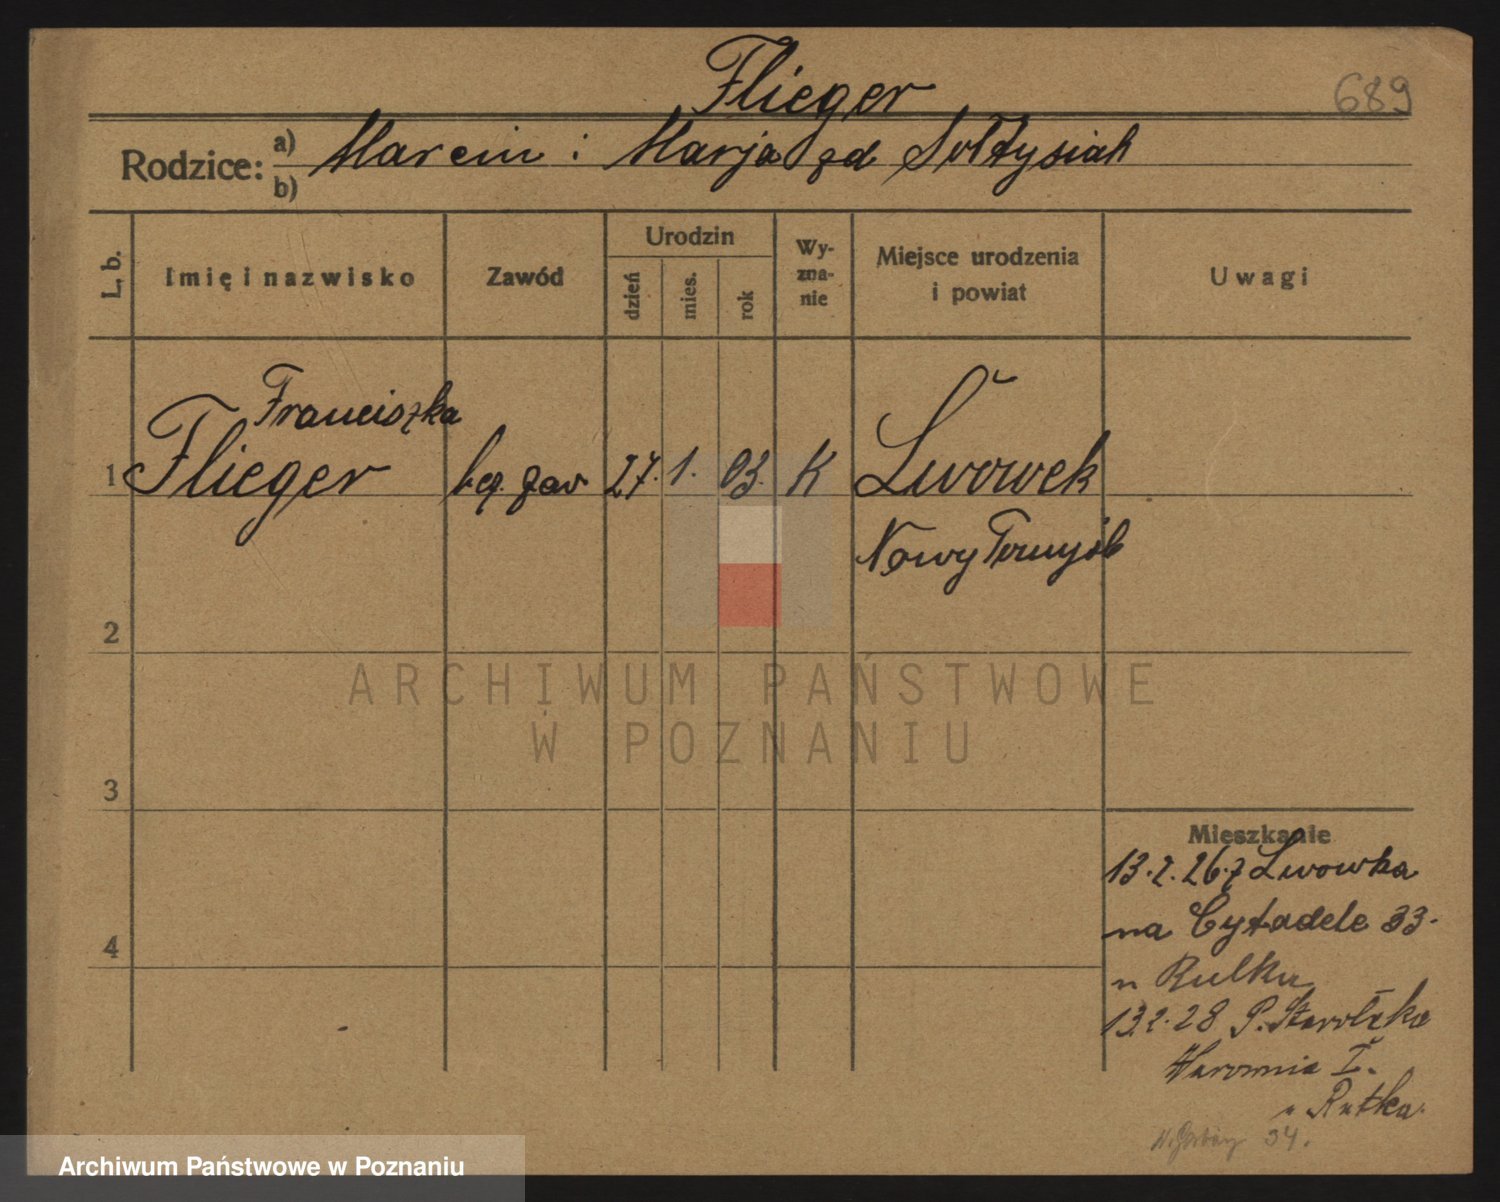 Flieger
689
Rodzice:
a) Marcin i Marja zd Sołtysiak
b)
L. b.
Imię i nazwisko
Zawód
Urodzin
dzień
mies.
rok
Wy-
zna-
nie
Miejsce urodzenia
i powiat
Uwagi
Franciszka
1 Flieger bez zaw 27. 1. 03. K Lwówek
Nowy Tomyśl
2
ARCHIWUM PAŃSTWOWE
W POZNANIU
3
Mieszkanie
13.2.26. z Lwówka
na Cytadele 33.
4
u Rulka
13.2.28 P. Starołęka
Warownia I.
u Rutka
34.
Archiwum Państwowe w Poznaniu